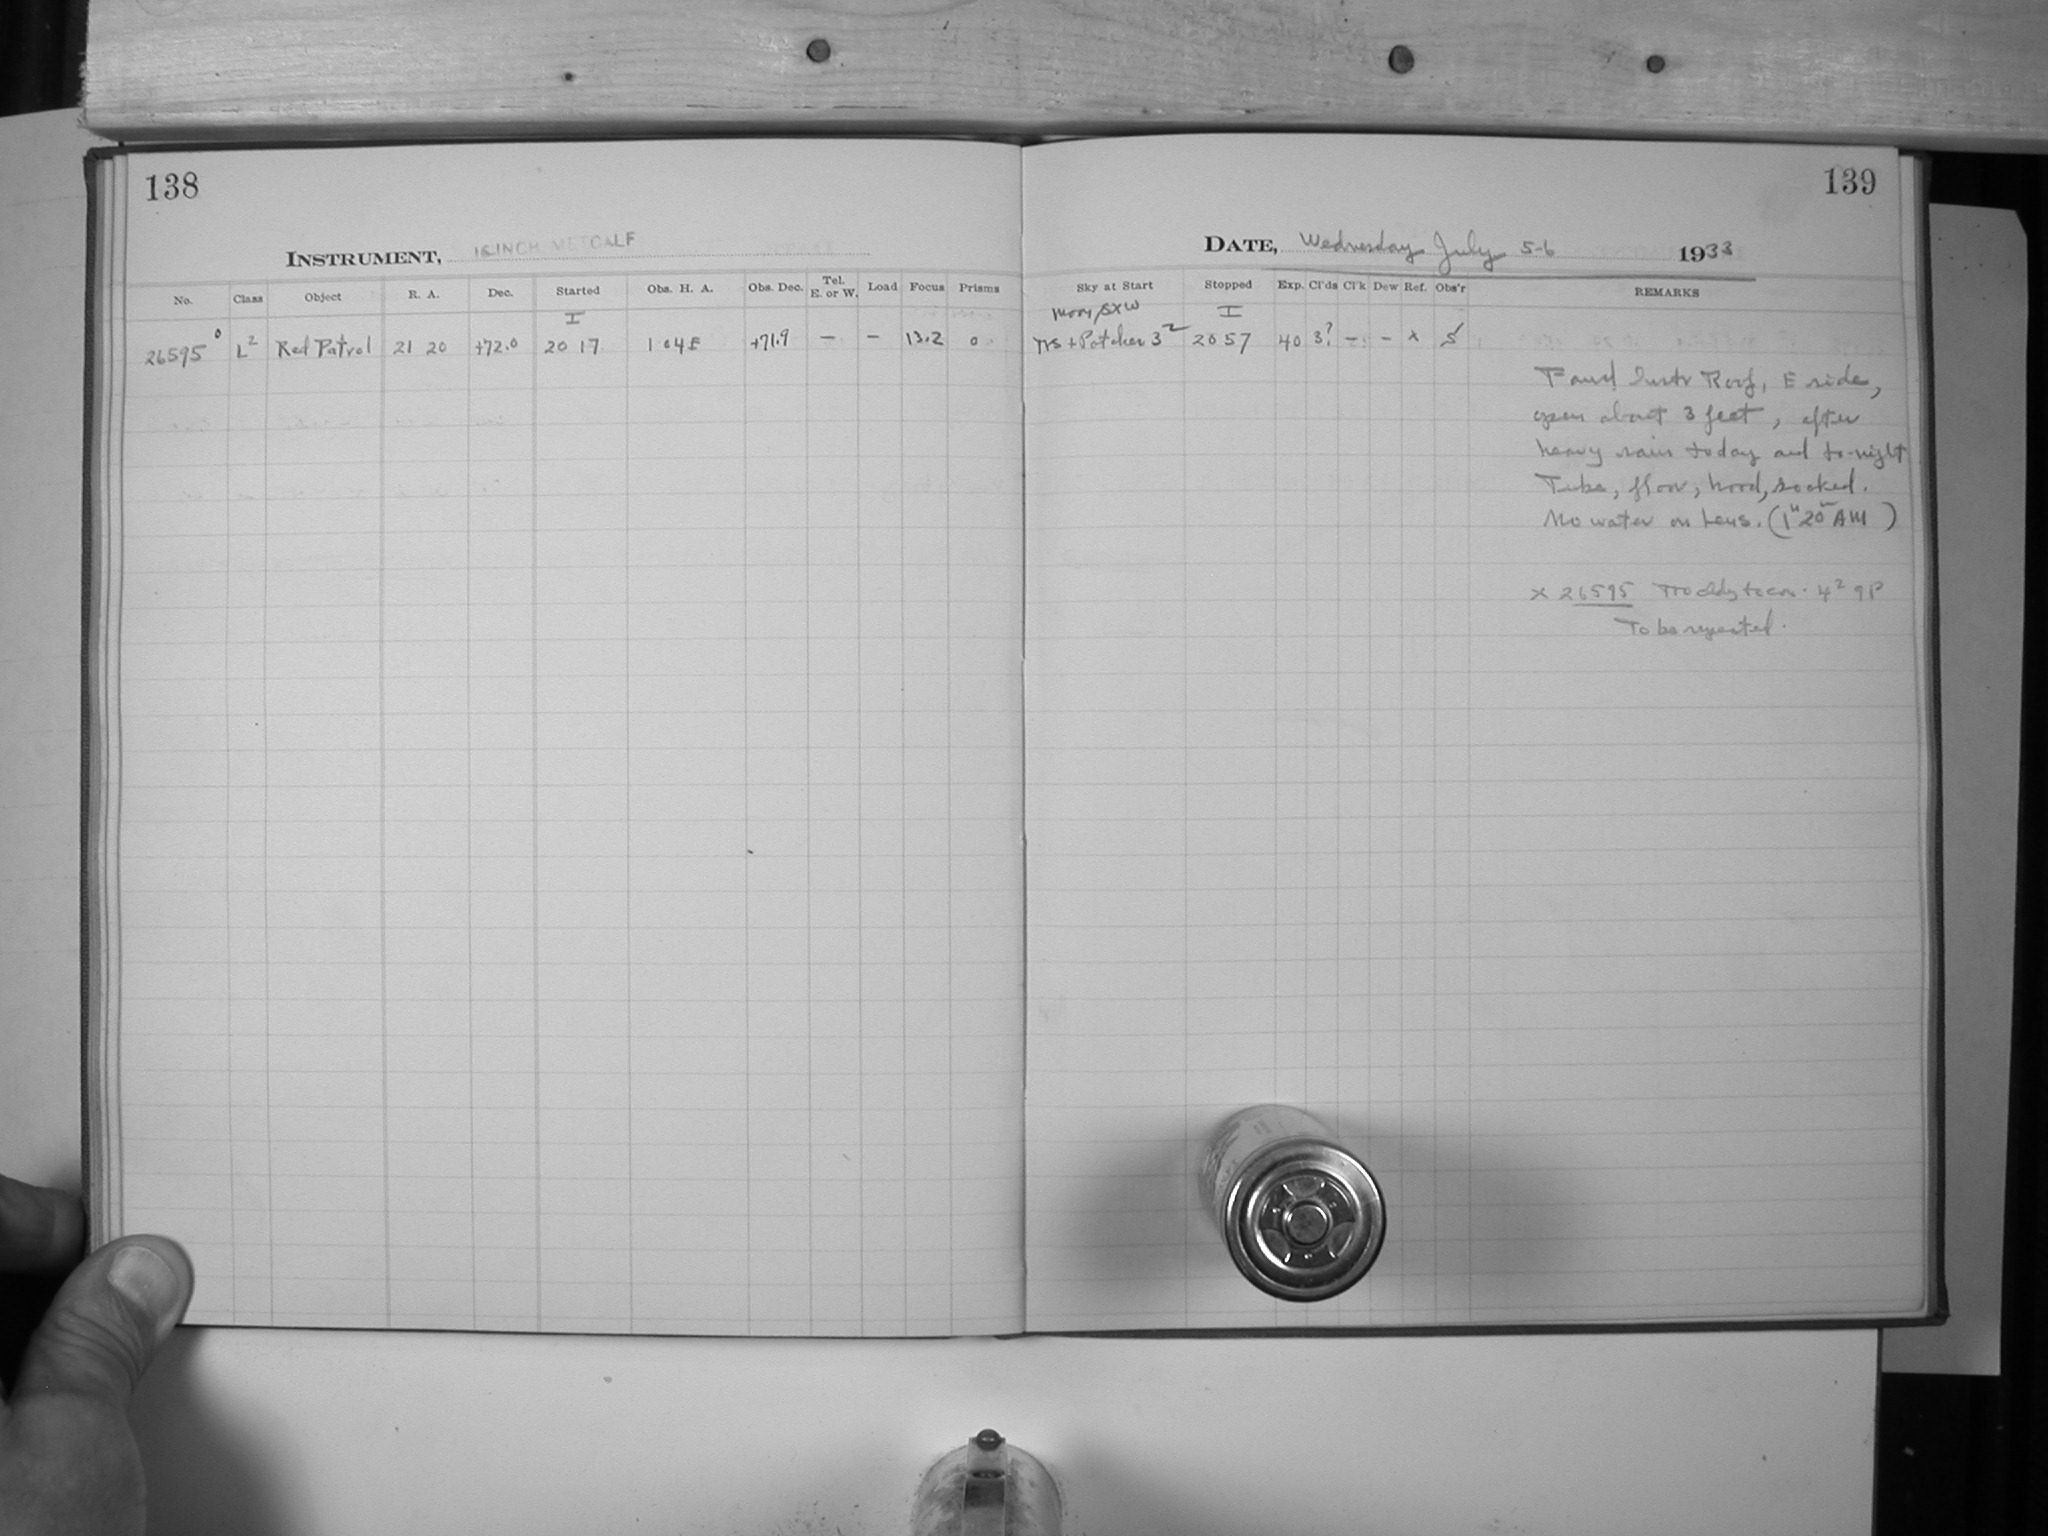 138
INSTRUMENT, 16 INCH METCALF
No. Class Object R. A. Dec. Started Obs. H. A. Obs. Dec. Tel. E. or W. Load Focus Prisms
I
26595 0 L2 Red Patrol 21 20 +72.0 20 17 1 04E +71.9 — — 13.2 0
139
DATE, Wednesday July 5-6 1933
Sky at Start Stopped Exp. Cl'ds Cl'k Dew Ref. Obs'r REMARKS
I
+ Patches 3 2 20 57 40 3? - - x
Found Instr Roof, E side,
open about 3 feet, after
heavy rain today and to-night
Tube, floor, hood, soaked.
No water on Lens. (1h 20m AM)
x 26595 4 2 9P
To be repeated.